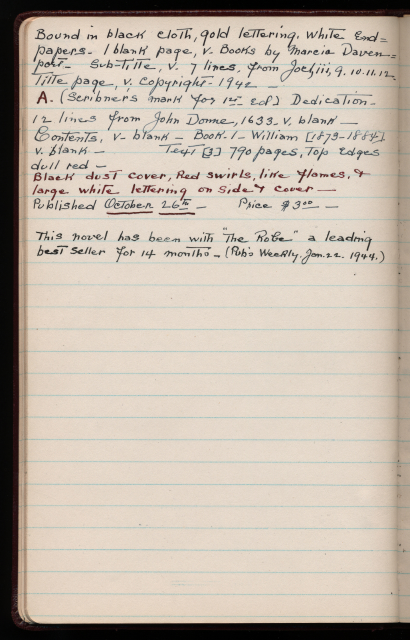 Bound in black cloth, gold lettering, white End=
papers. 1 blank page, v. Books by Marcia Daven=
port. Sub-title, v. 7 lines, from Joel, iii, 9. 10. 11. 12.
Title page, v. Copyright - 1942 -
A. (Scribner's mark for 1st ed) Dedication.
12 lines from John Donne, 1633. v. blank -
Contents, v - blank - Book. I - William [1873-1884]
v. blank - Text [3] 790 pages, Top edges
dull red -
Black dust cover, Red swirls, like flames, &
large white lettering on side & cover -
Published October 26th - Price $3.00 -
This novel has been with "The Robe" a leading
best seller for 14 months - (Pub's Weekly. Jan. 22. 1944.)